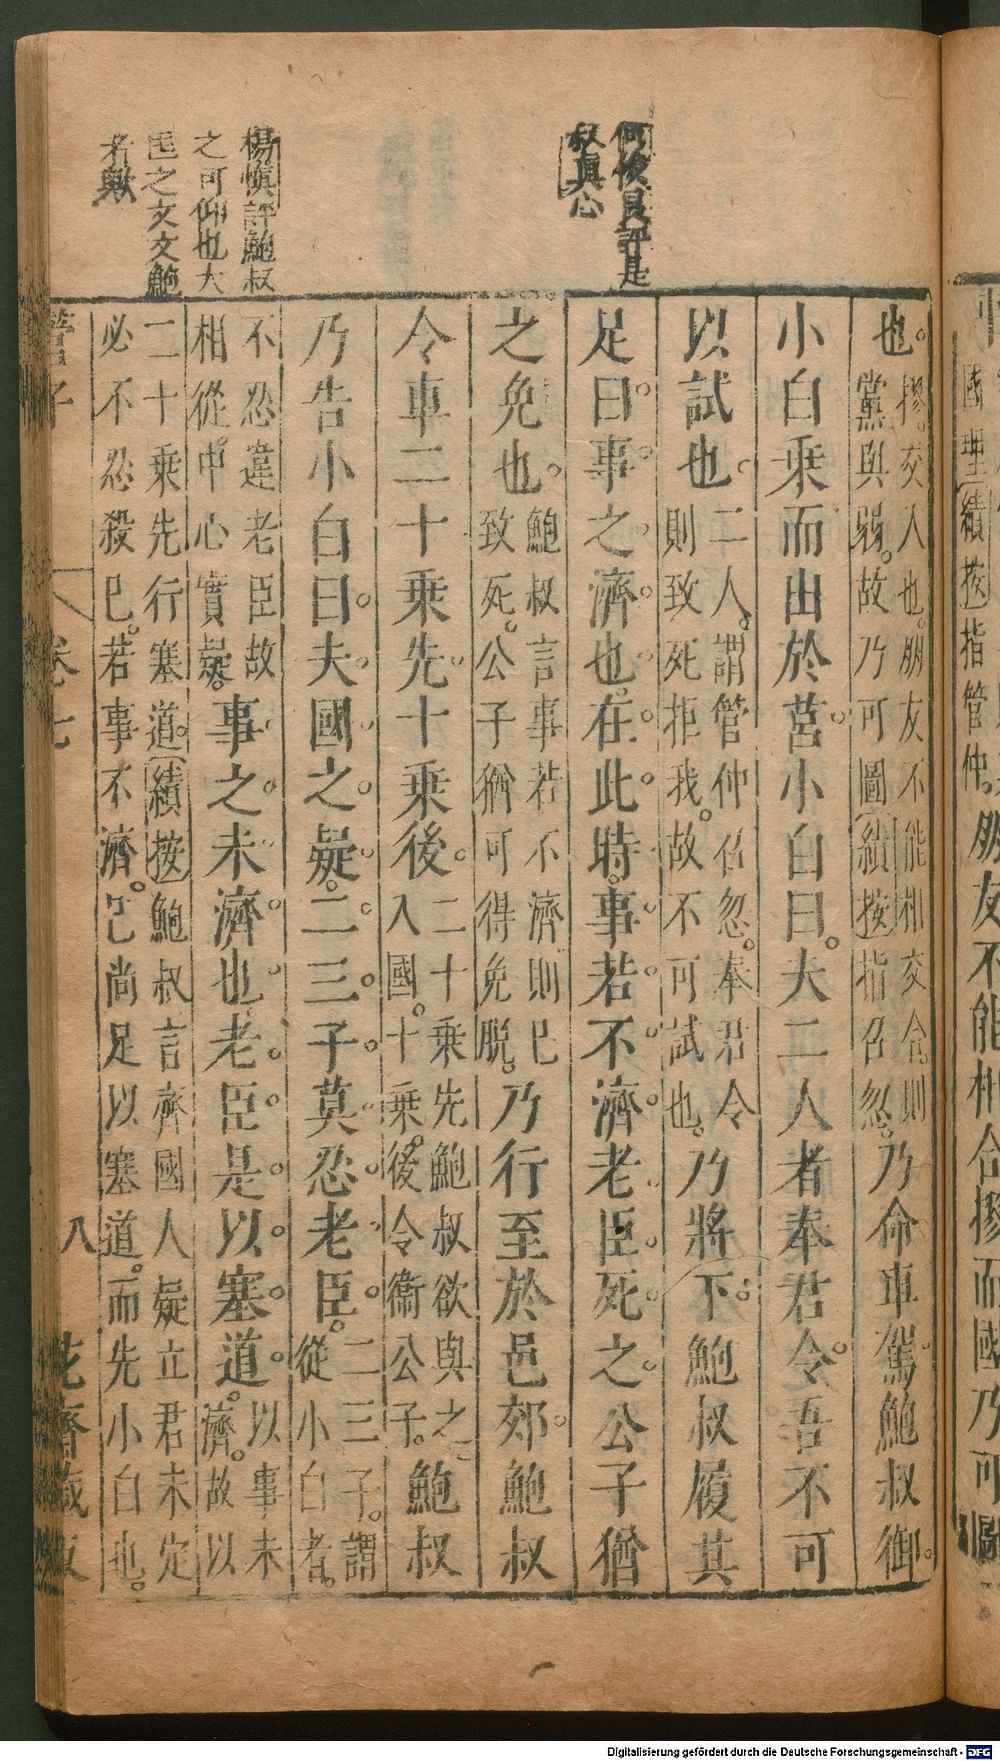 何俊良評是
叔真心
楊慎評鮑叔
之可仰也大
臣之文文鮑
者歟
也。摎。交入也。朋友不能相交合。則黨與弱。故乃可圖績按指召忽。乃命車駕。鮑叔御。
小白乘而出於莒。小白曰。夫二人者奉君令。吾不可
以試也。二人。謂管仲召忽。奉君令則致死拒我。故不可試也。乃將下。鮑叔履其
足曰。事之濟也。在此時。事若不濟。老臣死之。公子猶
之免也。鮑叔言事若不濟。則已致死。公子猶可得免脫。乃行至於邑郊。鮑叔
令車二十乘先。十乘後。二十乘先鮑叔欲與之入國。十乘後。令衞公子。鮑叔
乃告小白曰。夫國之疑。二三子莫忍老臣。二三子。謂從小白者。
不忍違老臣故相從。中心實疑。事之未濟也。老臣是以塞道。以事未濟。故以
二十乘先行塞道。績按鮑叔言齊國人疑立君未定必不忍殺己。若事不濟。己尚足以塞道。而先小白也。
管子
卷七
八
花齋藏板
國
聖績按指管仲。朋友不能相合摎而國乃可圖
Digitalisierung gefördert durch die Deutsche Forschungsgemeinschaft - DFG